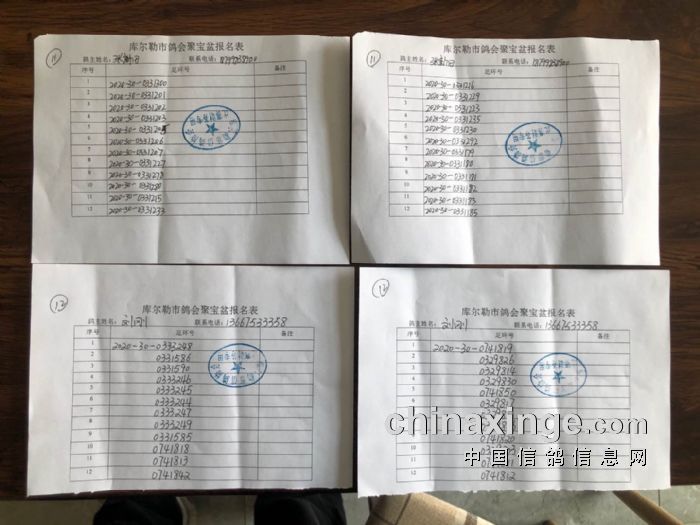 10
库尔勒市鸽会聚宝盆报名表
鸽主姓名:
联系电话:
序号 足环号 备注
1 2020-30-0331200
2 2020-30-0331201
3 2020-30-0331202
4 2020-30-0331203
5 2020-30-0331205
6 2020-30-0331206
7 2020-30-0331207
8 2020-30-0331227
9 2020-30-0331228
10
11
12 2020-30-0331233
11
库尔勒市鸽会聚宝盆报名表
鸽主姓名:
联系电话:
序号 足环号 备注
1 2020-30-0331216
2 2020-30-0331229
3
4 2020-30-0331235
5 2020-30-0331230
6 2020-30-0331292
7 2020-30-0331179
8 2020-30-0331180
9 2020-30-0331181
10 2020-30-0331182
11 2020-30-0331183
12 2020-30-0331185
12
库尔勒市鸽会聚宝盆报名表
鸽主姓名: 刘刚 联系电话: 13667533358
序号 足环号 备注
1 2020-30-0333248
2 0331586
3 0331590
4 0333246
5 0333245
6 0333244
7 0333247
8 0333249
9 0331585
10 0741818
11 0741813
12 0741842
13
库尔勒市鸽会聚宝盆报名表
鸽主姓名: 刘刚 联系电话: 13667533358
序号 足环号 备注
1 2020-30-0741819
2 0329826
3 0329814
4 0329830
5 0741850
6 0329817
7
8
9 0741820
10
11
12 0741812
chinaxinge.com
中国信鸽信息网